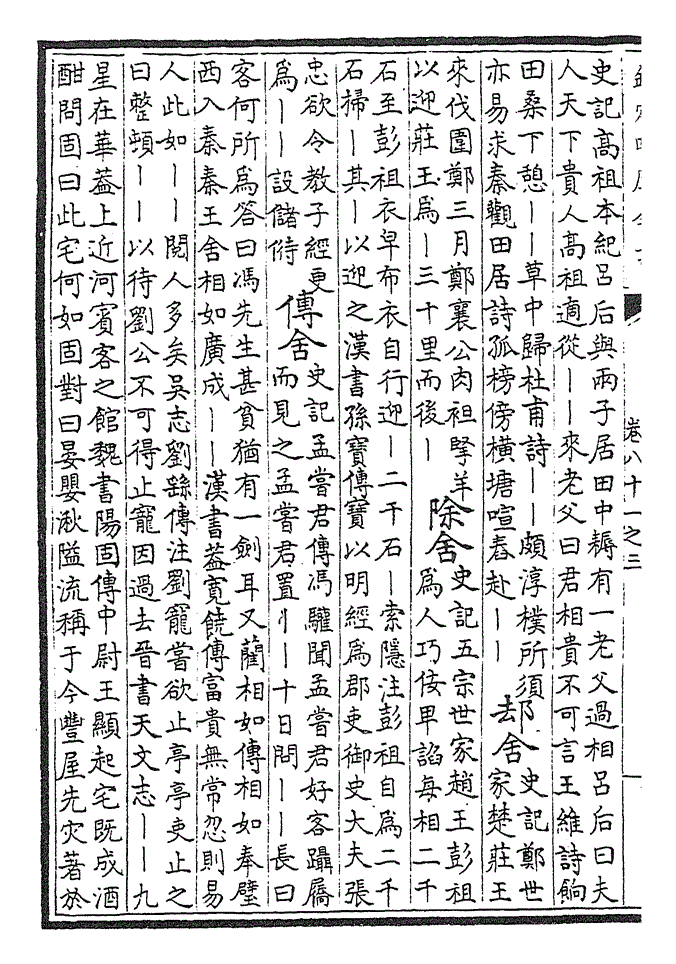 卷八十一之三
史記高祖本紀呂后與兩子居田中耨有一老父過相呂后曰夫
人天下貴人高祖適從丨丨來老父曰君相貴不可言王維詩餉
田桑下憩丨丨草中歸杜甫詩丨丨頗淳樸所須
亦易求秦觀田居詩孤榜傍橫塘喧舂赴丨丨
却舍
史記鄭世
家楚莊王
來伐圍鄭三月鄭襄公肉袒掔羊
以迎莊王為丨三十里而後丨
除舍
史記五宗世家趙王彭祖
為人巧佞卑諂每相二千
石至彭祖衣皁布衣自行迎丨二千石丨索隱注彭祖自為二千
石掃丨其丨以迎之漢書孫寶傳寶以明經為郡吏御史大夫張
忠欲令教子經更
為丨丨設儲偫
傳舍
史記孟嘗君傳馮驩聞孟嘗君好客躡屩
而見之孟嘗君置丨丨十日問丨丨長曰
客何所為答曰馮先生甚貧猶有一劍耳又藺相如傳相如奉璧
西入秦秦王舍相如廣成丨丨漢書蓋寬饒傳富貴無常忽則易
人此如丨丨閱人多矣吳志劉繇傳注劉寵嘗欲止亭亭吏止之
曰整頓丨丨以待劉公不可得止寵因過去晉書天文志丨丨九
星在華蓋上近河賓客之館魏書陽固傳中尉王顯起宅既成酒
酣問固曰此宅何如固對曰晏嬰湫隘流稱于今豐屋先灾著於